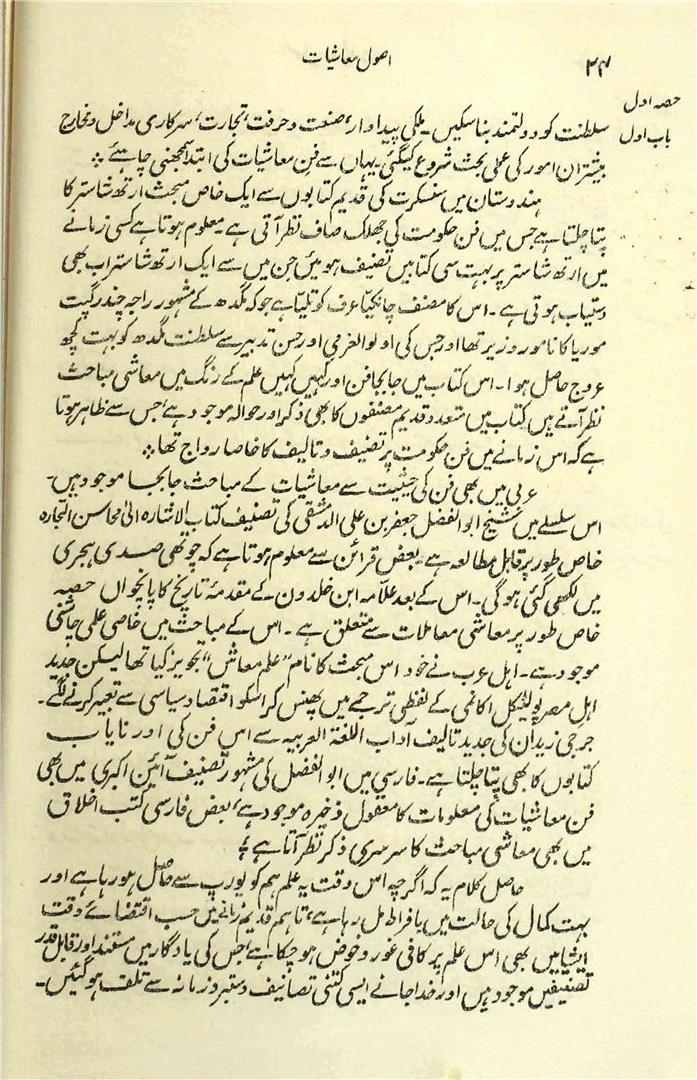 ۲۴
اصول معاشیات
حصہ اول
باب اول
سلطنت کو دولتمند بنا سکیں۔ ملکی پیداوار، صنعت و حرفت، تجارت، سرکاری مداخل و مخارج
بیشتر ان امور کی عملی بحث شروع کیگئی۔ یہاں سے فن معاشیات کی ابتدا سمجھنی چاہئے ؞
ہندوستان میں سنسکرت کی قدیم کتابوں سے ایک خاص مبحث ارتھ شاستر کا
پتا چلتا ہے جس میں فن حکومت کی جھلک صاف نظر آتی ہے۔ معلوم ہوتا ہے کسی زمانے
میں ارتھ شاستر پر بہت سی کتابیں تصنیف ہوئیں جن میں سے ایک ارتھ شاستر اب بھی
دستیاب ہوتی ہے۔ اس کا مصنف چانکیا عرف کوتلیا ہے جو کہ مگدھ کے مشہور راجہ چندر گپت
موریا کا نامور وزیر تھا اور جس کی اولوالعزمی اور حسن تدبیر سے سلطنت مگدھ کو بہت کچھ
عروج حاصل ہوا۔ اس کتاب میں جابجا فن اور کہیں کہیں علم کے رنگ میں معاشی مباحث
نظر آتے ہیں کتاب میں متعدد قدیم مصنفوں کا بھی ذکر اور حوالہ موجود ہے، جس سے ظاہر ہوتا
ہے کہ اس زمانے میں فن حکومت پر تصنیف و تالیف کا خاصا رواج تھا ؞
عربی میں بھی فن کی حیثیت سے معاشیات کے مباحث جابجا موجود ہیں۔
اس سلسلے میں شیخ ابوالفضل جعفر بن علی الدمشقی کی تصنیف کتاب الاشارہ الیٰ محاسن التجارہ
خاص طور پر قابل مطالعہ ہے۔ بعض قرائن سے معلوم ہوتا ہے کہ چوتھی صدی ہجری
میں لکھی گئی ہوگی۔ اس کے بعد علامہ ابن خلدون کے مقدمۂ تاریخ کا پانچواں حصہ
خاص طور پر معاشی معاملات سے متعلق ہے۔ اس کے مباحث میں خاصی علمی چاشنی
موجود ہے۔ اہل عرب نے خود اس مبحث کا نام ”علم معاش“ تجویز کیا تھا لیکن جدید
اہل مصر پولٹیکل اکانمی کے لفظی ترجمے میں پھنس کر اسکو اقتصاد سیاسی سے تعبیر کرنے لگے۔
جرجی زیدان کی جدید تالیف آداب اللغۃ العربیہ سے اس فن کی اور نایاب
کتابوں کا بھی پتا چلتا ہے۔ فارسی میں ابوالفضل کی مشہور تصنیف آئین اکبری میں بھی
فن معاشیات کی معلومات کا معقول ذخیرہ موجود ہے، بعض فارسی کتب اخلاق
میں بھی معاشی مباحث کا سرسری ذکر نظر آتا ہے ؞
حاصل کلام یہ کہ اگرچہ اس وقت یہ علم ہم کو یورپ سے حاصل ہو رہا ہے اور
بہت کمال کی حالت میں بافراط مل رہا ہے، تاہم قدیم زمانے میں حسب اقتضائے وقت
ایشیا میں بھی اس علم پر کافی غور و خوض ہو چکا ہے، جس کی یادگار میں مستند اور قابل قدر
تصنیفیں موجود ہیں اور خدا جانے ایسی کتنی تصانیف دستبرد زمانہ سے تلف ہوگئیں۔